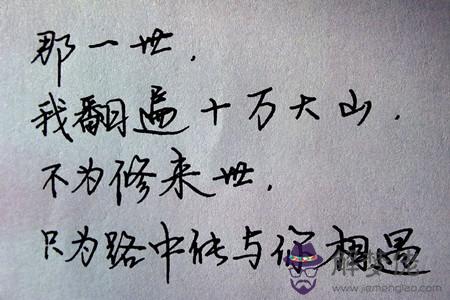 那一世，
我翻遍十万大山，
不为修来世，
只为路中能与你相遇
解梦佬
www.jiemenglao.com